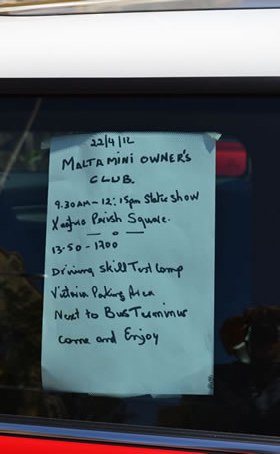 22/4/12
MALTA MINI OWNER'S
CLUB.
9.30AM - 12:15pm Static Show
Xewkija Parish Square.
— o —
13.50 - 1700
Driving Skill Test Comp
Victoria Parking Area
Next to Bus Terminus
Come and Enjoy